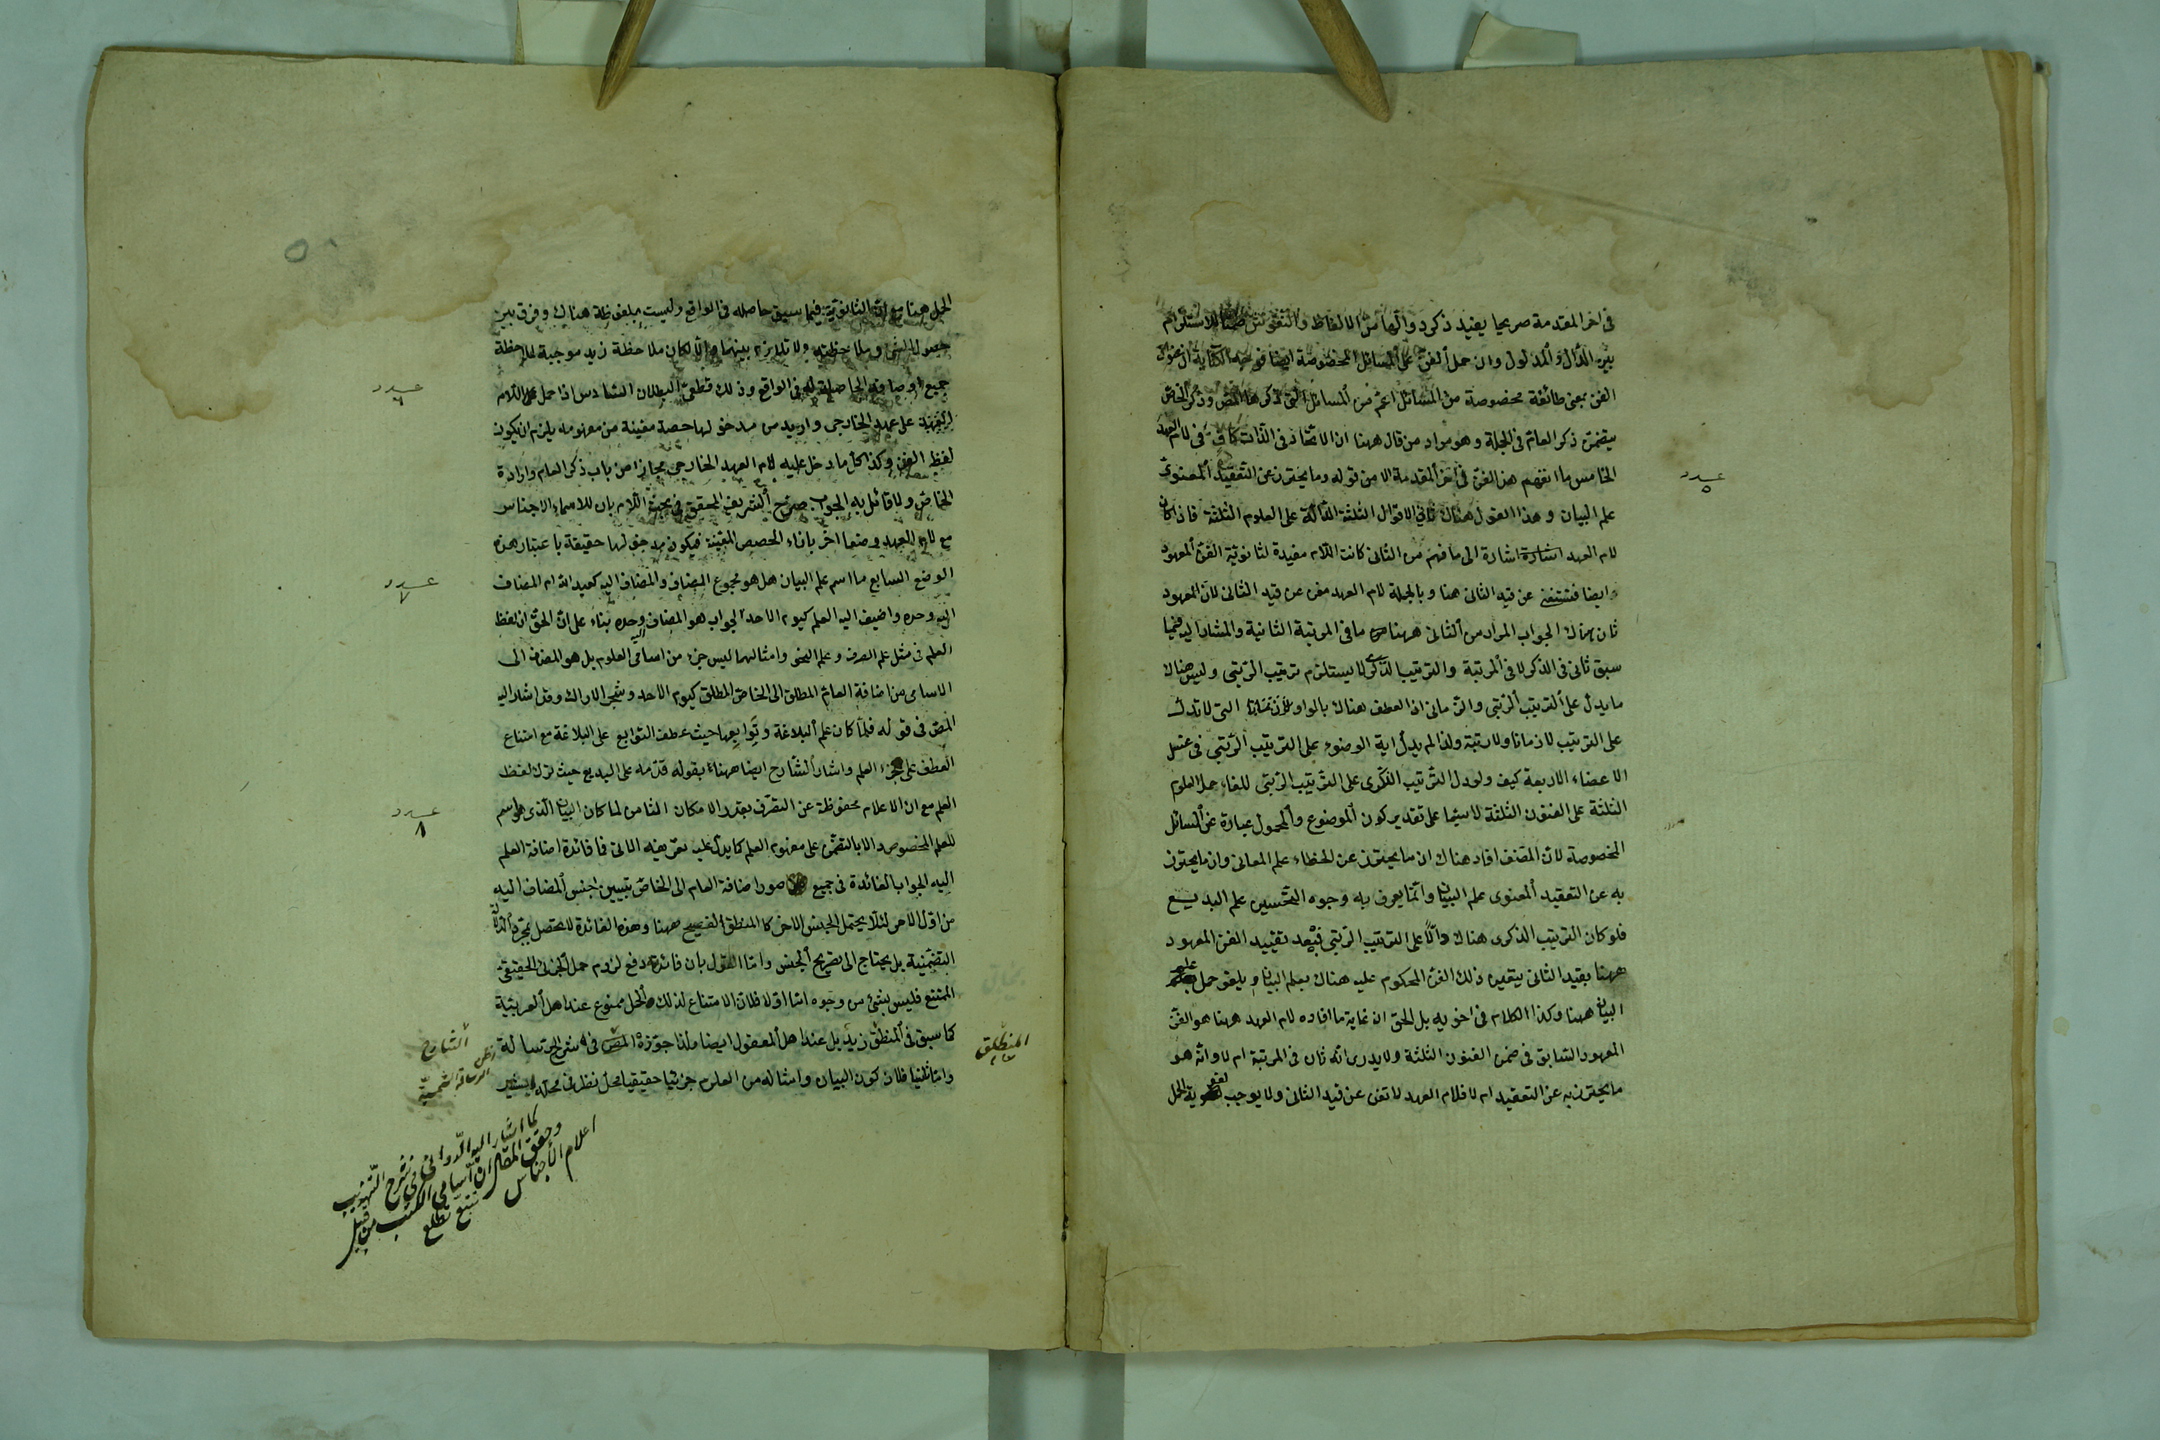 في اخر المقدمة صريحا يفيد ذكر دوالها من الالفاظ والنقوش ضمنا للاستلزام
بين الدال والمدلول وان حمل الفن على المسائل المخصوصة ايضا فوجهه
الفن بمعنى طائفة مخصوصة من المسائل اعم من المسائل التي ذكرها المص وذكر الخاص
يتضمن ذكر العام في الجملة وهو مراد من قال ههنا ان الاتحاد في الذات كاف في لام العهد
الخامس ما انفهم هذا الفن في اخر المقدمة الا من قوله وما يحترز به عن التعقيد المعنوي
عدد ٥
علم البيان وهذا القول هناك ثاني الاقوال الثلثة الدالة على العلوم الثلثة فاذا كان
لام العهد اشارة الى ما فهم من الثاني كانت اللام مفيدة لثانوية الفن المعهود
وايضا فتستغني عن قيد الثاني هنا وبالجملة لام العهد مغن عن قيد الثاني لان المعهود
ثان هناك الجواب المراد من الثاني ههنا ما في المرتبة الثانية والمشار اليه فيما
سبق ثاني في الذكر لا في المرتبة والترتيب الذكرى لا يستلزم ترتيب الرتبي وليس هناك
ما يدل على الترتيب الرتبي والزماني اذ العطف هناك بالواو التي لا تدل
على الترتيب لا زمانا ولا رتبة ولذا لم يدل اية الوضوء على الترتيب الرتبي في غسل
الاعضاء الاربعة كيف ولو دل الترتيب الذكرى على الترتيب الرتبي للغاء حمل العلوم
الثلثة على الفنون الثلثة لا سيما على تقدير كون الموضوع والمحمول عبارة عن المسائل
المخصوصة لان المصنف افاد هناك ان ما يحترز به عن الخطاء علم المعاني وان ما يحترز
به عن التعقيد المعنوى علم البيان وانما يعرف به وجوه التحسين علم البديع
فلو كان الترتيب الذكرى هناك دالا على الترتيب الرتبي فبعد تقييد الفن المعهود
ههنا بقيد الثاني يتعين ذلك الفن المحكوم عليه هناك بعلم البيان ويلغو حمل علم
البيان ههنا وكذا الكلام في اخويه بل الحق ان غاية ما افاده لام العهد ههنا هو الفن
المعهود السابق في ضمن الفنون الثلثة ولا يدرى انه ثان في المرتبة ام لا وانه هو
ما يحترز به عن التعقيد ام لا فلام العهد لا تغني عن قيد الثاني ولا يوجب لغوية الحمل
الحمل ههنا مع ان الثانوية فيما سبق حاصله في الواقع وليست بملحوظة هناك وفرق بين
حصول الشئ وملاحظته ولا تلازم بينهما والا لكان ملاحظة زيد موجبة لملاحظة
جميع اوصافه الحاصلة له في الواقع وذلك قطعي البطلان السادس اذا حمل اللام
عدد ٦
للعهد على عهد الخارجي واريد من مدخولها حصة معينة من مفهومه يلزم ان يكون
لفظ الفن وكذا كل ما دخل عليه لام العهد الخارجي مجازا من باب ذكر العام وارادة
الخاص ولا قائل به الجواب صرح الشريف المحقق في بحث اللام بان للاسماء الاجناس
مع لام العهد وضعا اخر بازاء الحصص المعينة فيكون مدخولها حقيقة باعتبار هذه
الوضع السابع ما اسم علم البيان هل هو مجموع المضاف والمضاف اليه كعبد الله ام المضاف
عدد ٧
اليه وحده واضيف اليه العلم كيوم الاحد الجواب هو المضاف اليه وحده بناء على ان الحق ان لفظ
العلم في مثل علم الصرف وعلم النحو وامثالهما ليس جزء من اسامى العلوم بل هو المضاف الى
الاسامى من اضافة العام المطلق الى الخاص المطلق كيوم الاحد وشجر الاراك وقد اشار اليه
المص في قوله فلما كان علم البلاغة وتوابعها حيث عطف التوابع على البلاغة مع امتناع
العطف على جزء العلم واشار الشارح ايضا ههنا بقوله قدمه على البديع حيث ترك لفظ
العلم مع ان الاعلام محفوظة عن التصرف بقدر الامكان الثامن لما كان البيان الذى هو اسم
عدد ٨
للعلم المخصوص دالا بالتضمن على مفهوم العلم كما يدل عليه تعريفه الاتي فما فائدة اضافة العلم
اليه الجواب الفائدة في جميع صور اضافة العام الى الخاص تبيين جنس المضاف اليه
من اول الامر لئلا يحتمل الجنس الاخر كالمنطق الفصيح ههنا وهذه الفائدة لا تحصل بمجرد الدلالة
التضمنية بل يحتاج الى تصريح الجنس واما القول بان فائدته دفع لزوم حمل الجزئي الحقيقي
الممتنع فليس بشئ من وجوه اما اولا فلان الامتناع لذلك الحمل ممنوع عند اهل العربية
كما سبق في المنطلق زيد بل عند اهل المعقول ايضا ولذا جوزه المص في شرح الرسالة
المنطلق
الشارح
الرسالة الشمسية
واما ثانيا فلان كون البيان وامثاله من العلوم جزئيا حقيقيا محل نظر في محله يشير
كما اشار اليه الدواني في شرح التهذيب
وحقق المص ان اسامى الكتب من قبيل
اعلام الاجناس تتبع تطلع